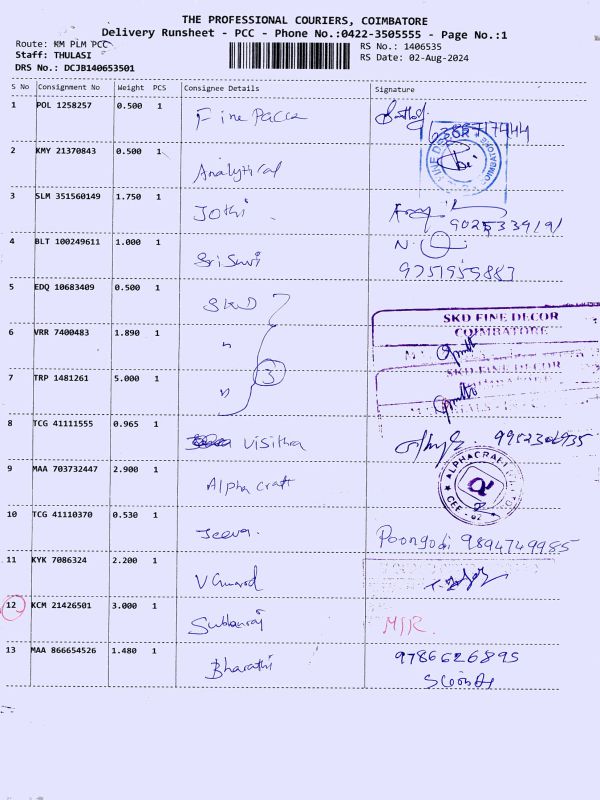 THE PROFESSIONAL COURIERS, COIMBATORE
Delivery Runsheet - PCC - Phone No.:0422-3505555 - Page No.:1
Route: KM PLM PCC
Staff: THULASI
DRS No.: DCJB140653501
RS No.: 1406535
RS Date: 02-Aug-2024
S No Consignment No Weight PCS Consignee Details Signature
1 POL 1258257 0.500 1 Fine Pacca
2 KMY 21370843 0.500 1 Analytical
COIMBATORE
3 SLM 351560149 1.750 1 Jothi
4 BLT 100249611 1.000 1 Sri Survi
5 EDQ 10683409 0.500 1 SKD
SKD FINE DECOR
COIMBATORE
6 VRR 7400483 1.890 1 "
SKD FINE DECOR
7 TRP 1481261 5.000 1 " 3
8 TCG 41111555 0.965 1 Visithra 9952306935
9 MAA 703732447 2.900 1 Alpha craft
10 TCG 41110370 0.530 1 Jeeva. Poongodi 9894749985
11 KYK 7086324 2.200 1
12 KCM 21426501 3.000 1
13 MAA 866654526 1.480 1 Bharathi 9786626895